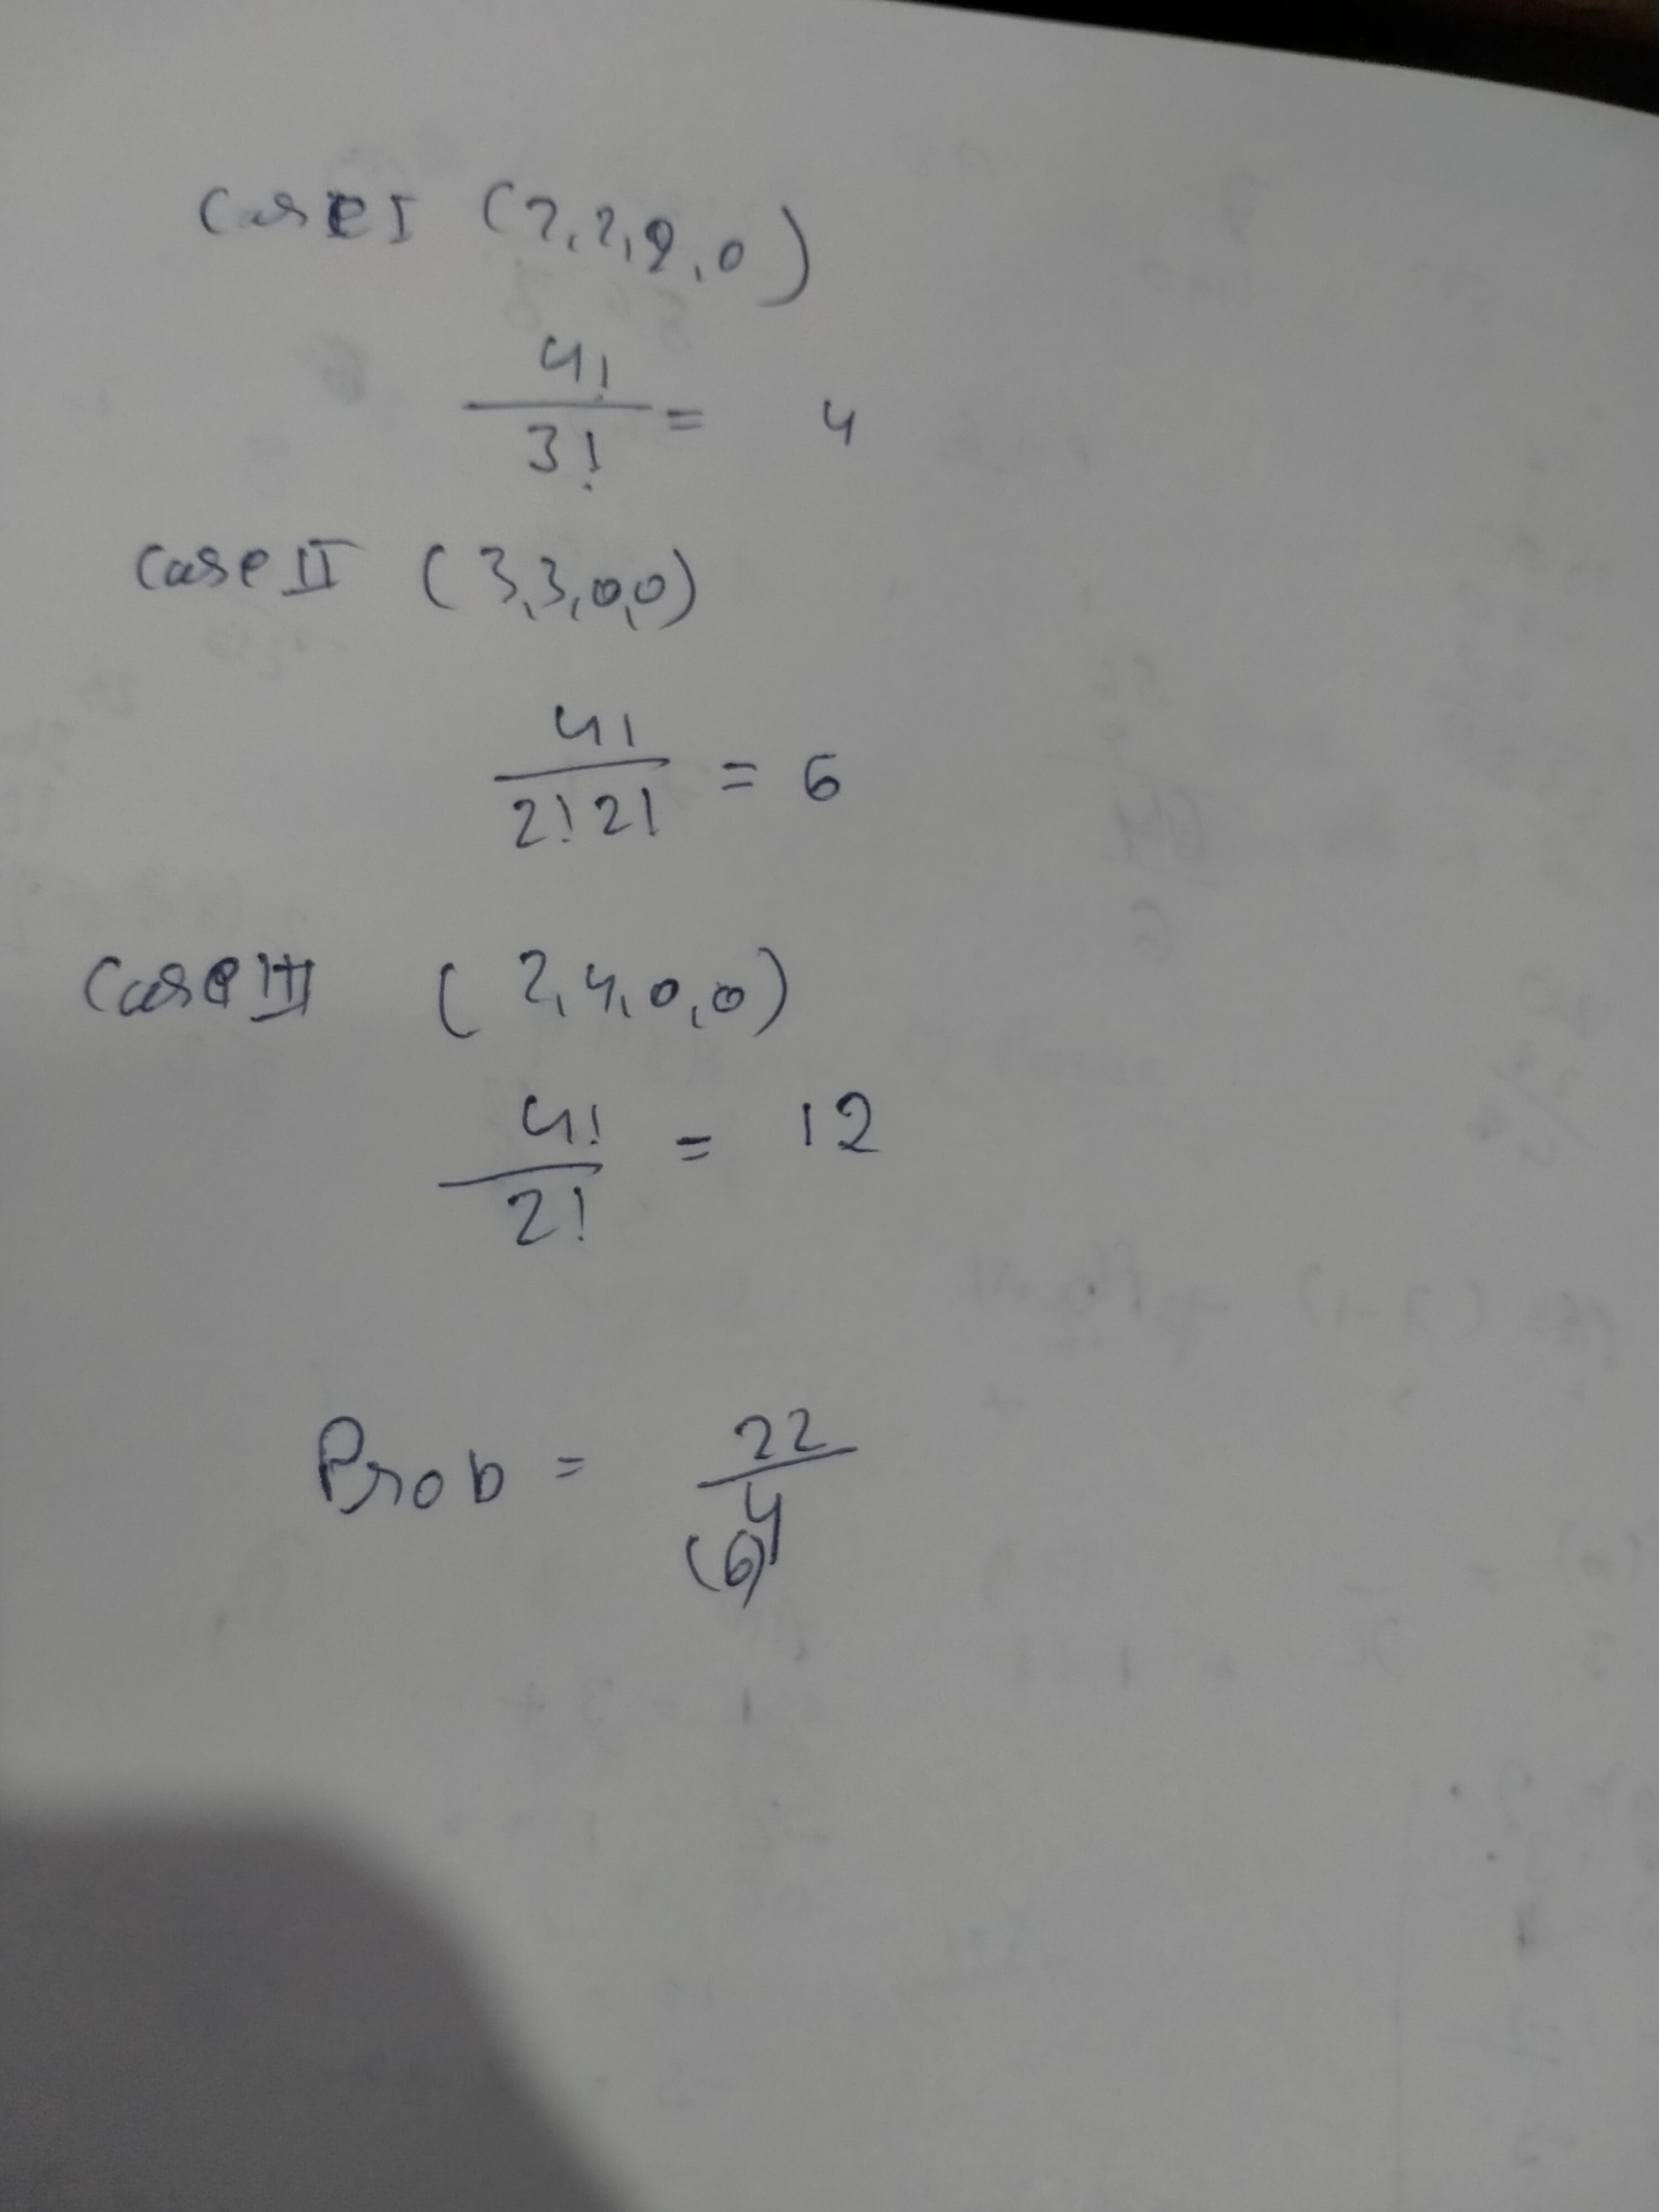 Case I (2,2,2,0)
4!
3! = 4
Case II (3,3,0,0)
4!
2! 2! = 6
Case III (2,4,0,0)
4!
2! = 12
Prob = 22
(6)4